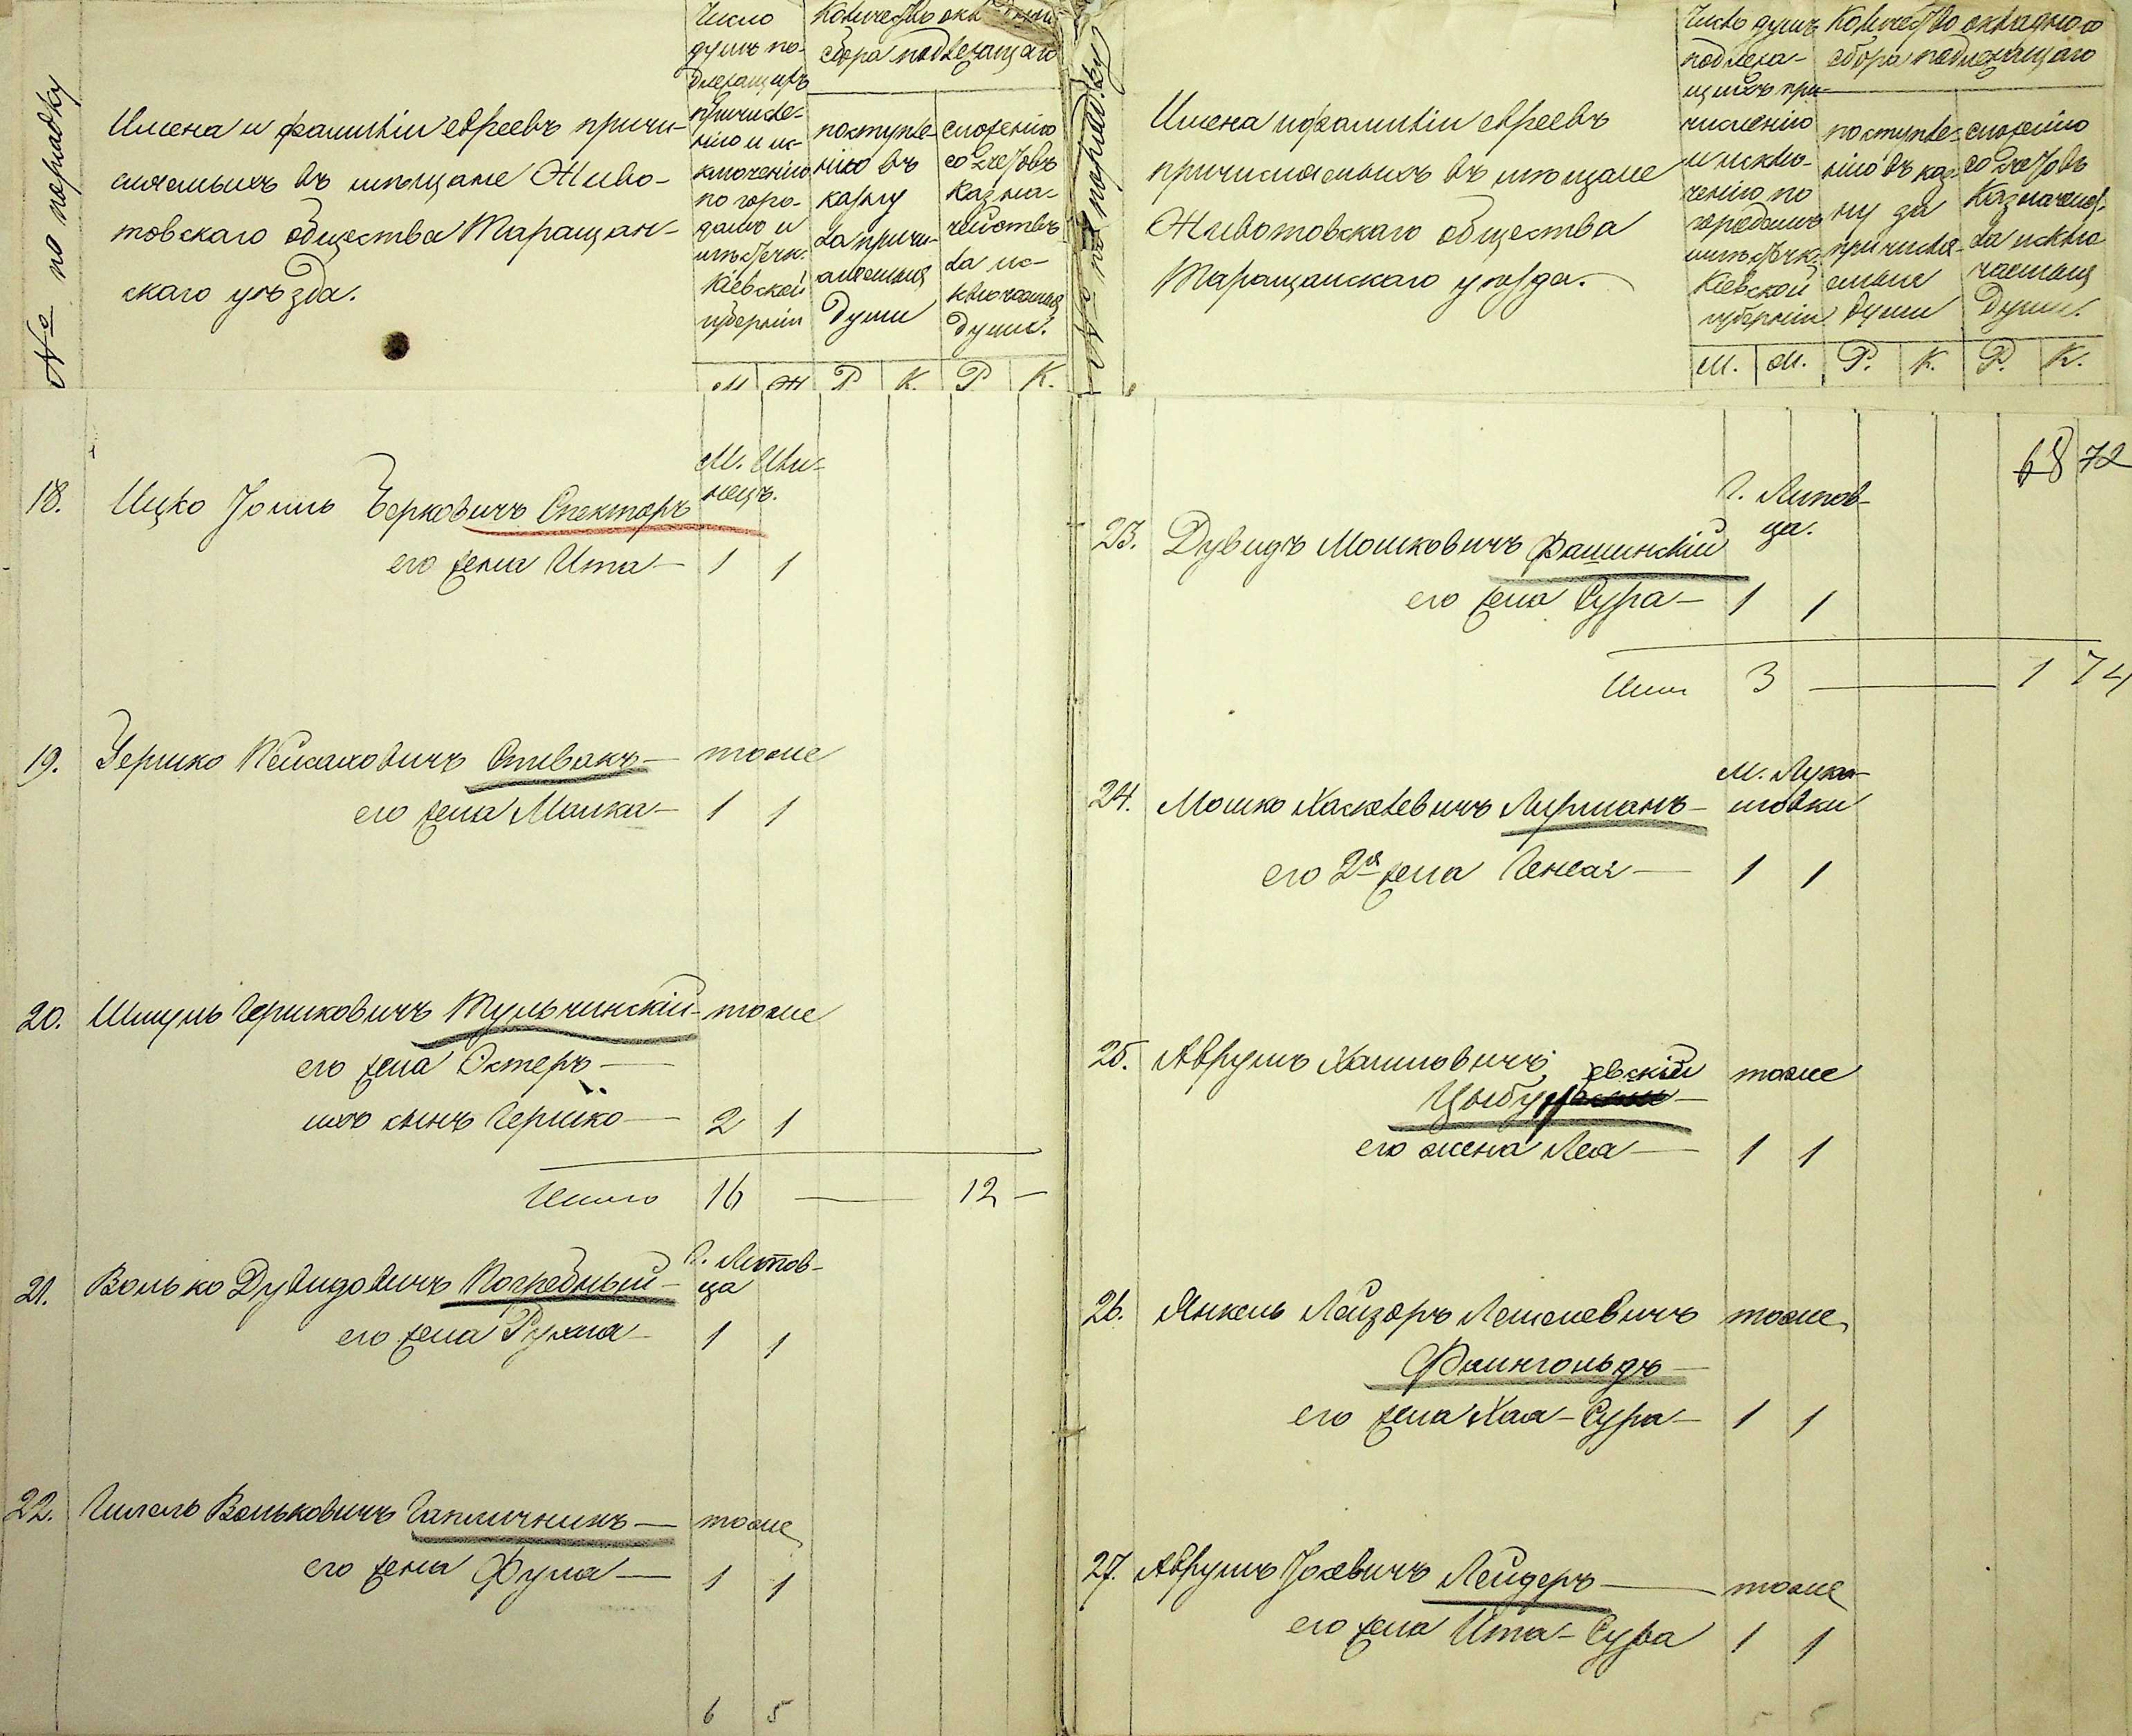 № по порядку
Имена и фамиліи евреевъ причи-
сляемыхъ въ мѣщане Живо-
товскаго общества Таращан-
скаго уѣзда.
Число
душъ по-
длежащихъ
причисле-
нію и ис-
ключенію
по горо-
дамъ и
мѣстечк.
Кіевской
губерніи
Количество
сбора подлежащаго
поступле-
нію въ
казну
за причи-
сляемыя
души
сложенію
со счетовъ
Казна-
чействъ
за ис-
ключаемыя
души.
М Ж Р К. Р К.
18. Ицко Іойль Берковичъ Спекторъ
М. Или-
нецъ.
его жена Ита — 1 1
19. Гершко Пейсаховичъ Спивакъ — тоже
его жена Малка — 1 1
20. Шмуль Гершковичъ Тульчинскій — тоже
его жена Эстеръ —
ихъ сынъ Гершко — 2 1
Итого 16 — 12 —
21. Волько Дувидовичъ Погребный —
Г. Липов-
ца
его жена Рухля — 1 1
22. Гилель Вольковичъ — тоже
его жена — 1 1
6 5
№ по порядку
Имена и фамиліи евреевъ
причисляемыхъ въ мѣщане
Животовскаго общества
Таращанскаго уѣзда.
Число душъ
подлежа-
щихъ при-
численію
и исклю-
ченію по
городамъ
мѣстечк.
Кіевской
губерніи
Количество окладного
сбора подлежащаго
поступле-
нію въ каз-
ну за
причисля-
емыя
души
сложенію
со счетовъ
Казначейс.
за исклю
чаемыя
души.
М. М. Р. К. Р. К.
68 72
23. Дувидъ Мошковичъ Фашинскій
Г. Липов-
ца.
его жена Сура — 1 1
Итого 3 — 1 74
24. Мошко Хаскелевичъ Лирманъ —
М. Лука-
шовки
его 2я жена Генеся — 1 1
25. Аврумъ Хаимовичъ тоже
евскій
Цыбул
его жена Леа — 1 1
26. Янкель Лейзоръ тоже
Фаингольдъ —
его жена Хая-Сура — 1 1
27. Аврумъ Іосевичъ Лейдеръ — тоже
его жена Ита-Сура 1 1
5 5